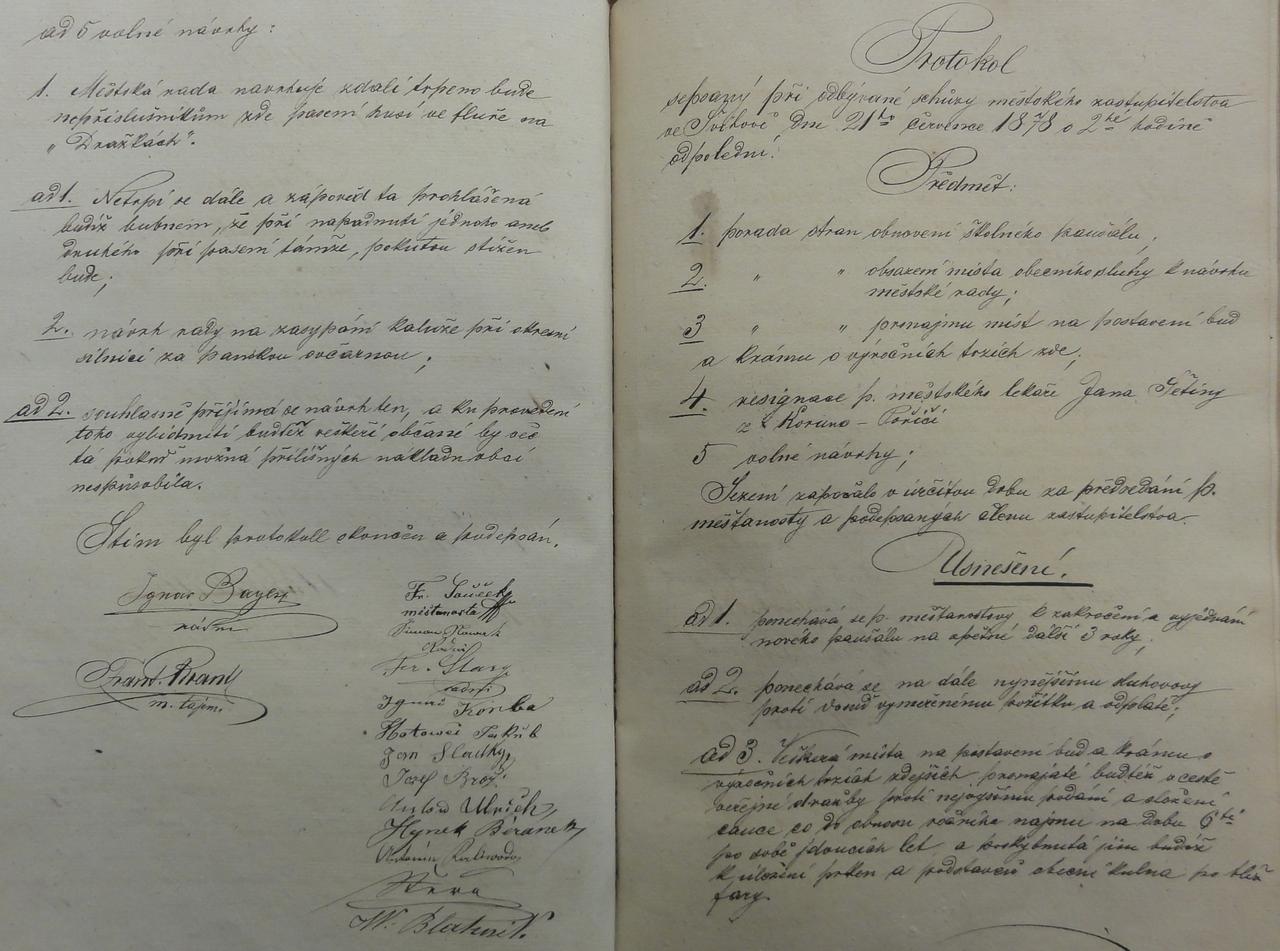 ad 5 volné návrhy:
1. Městská rada navrhuje zdali trpeno bude
nepříslušníkům zde pasení husí ve fluře na
„Dražkách".
ad 1. Netrpí se dále a zápověd ta prohlášená
budiž bubnem, že při napadnutí jednoho aneb
druhého při pasení tamže, pokutou stížen
bude;
2. návrh rady na zasypání kaluže při okresní
silnici za panskou ovčárnou;
ad 2. souhlasně přijímá se návrh ten, a ku provedení
toho vybídnuti buďtež veškeří občané by věc
tá pokud možná přílišných nákladu obci
nespůsobila.
Stím byl protokoll okončen a podepsán.
Ignac Bayer
radní
Frant.
m. tajm.
Fr. Souček
měšťanosta
Simon Nowak
Radní
Fr. Stary
radní
Ignac Konba
Jakub
Jan Sladky
Josef Brož
Ulrich
Hynek Beranek
Antonín
Štěra
W. Blahnik
Protokol
sepsaný při odbývané schůzy městského zastupitelstva
ve Švihově, dne 21ho července 1878 o 2hé hodině
odpolední.
Předmět:
1. porada stran obnovení školného paušálu,
2. " " obsazení místa obecního sluhy k návrhu
městské rady;
3 " " pronajmu míst na postavení bud
a krámu o výročních trzích zde;
4. resignace p. městského lekaře Jana Šetiny
z Koruno - Poříčí
5 volné návrhy;
Sezení započalo v určitou dobu za předsedání p.
měšťanosty a podepsaných členu zastupitelstva.
Usnešení.
ad 1. ponechává se p. měšťanostovy k zakročení a vyjednání
nového paušálu na opětné další 3 roky;
ad 2. ponechává se na dále nynějšímu sluhovovy
proti dosud vyměřenému požitku a odplatě;
ad 3. Veškerá místa na postavení bud a krámu o
výročních trzích zdejších pronajaté buďtéž v cestě
veřejné dražby proti nejvyššímu podání a složení
cauce co do obnosu ročního najmu na dobu 6té
po sobě jdoucích let, a poskytnutá jim budiž
k uložení prken a podstavců obecní kulna po blíž
fary.